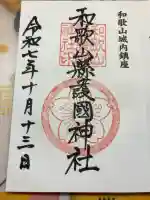 和歌山城内鎮座
和歌山縣護國神社
令和七年十月十三日